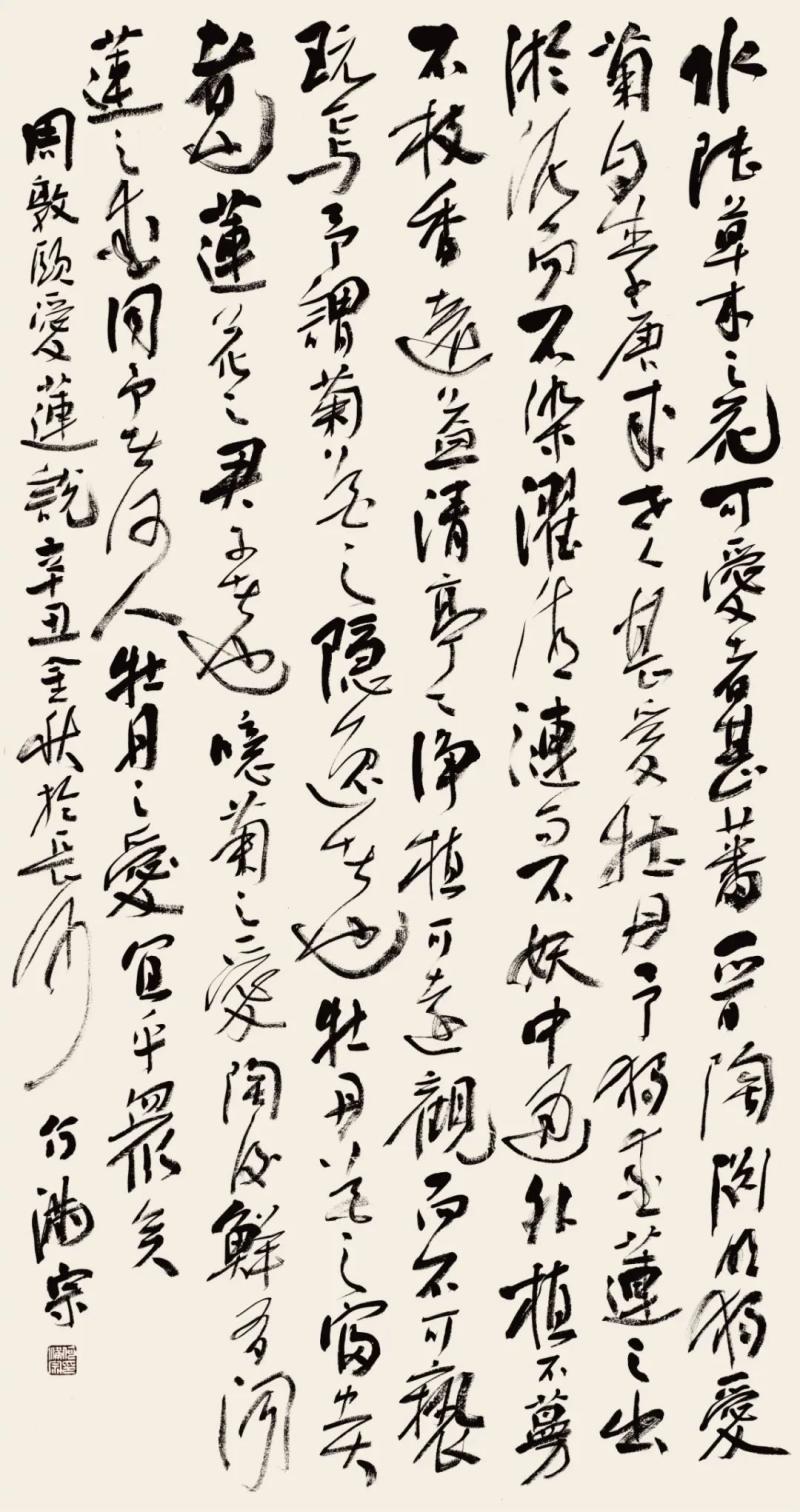 水陸草木之花可愛者甚蕃晉陶淵明獨愛
菊自李唐来世人甚愛牡丹予獨愛蓮之出
淤泥而不染濯清漣而不妖中通外植不蔓
不枝香遠益清亭々淨植可遠觀而不可褻
玩焉予謂菊花之隱逸者也牡丹花之富貴
者也蓮花之君子者也噫菊之愛陶後鮮有聞
蓮之愛同予者何人牡丹之愛宜乎眾矣
周敦頤愛蓮說辛丑金秋於長沙 何滿宗